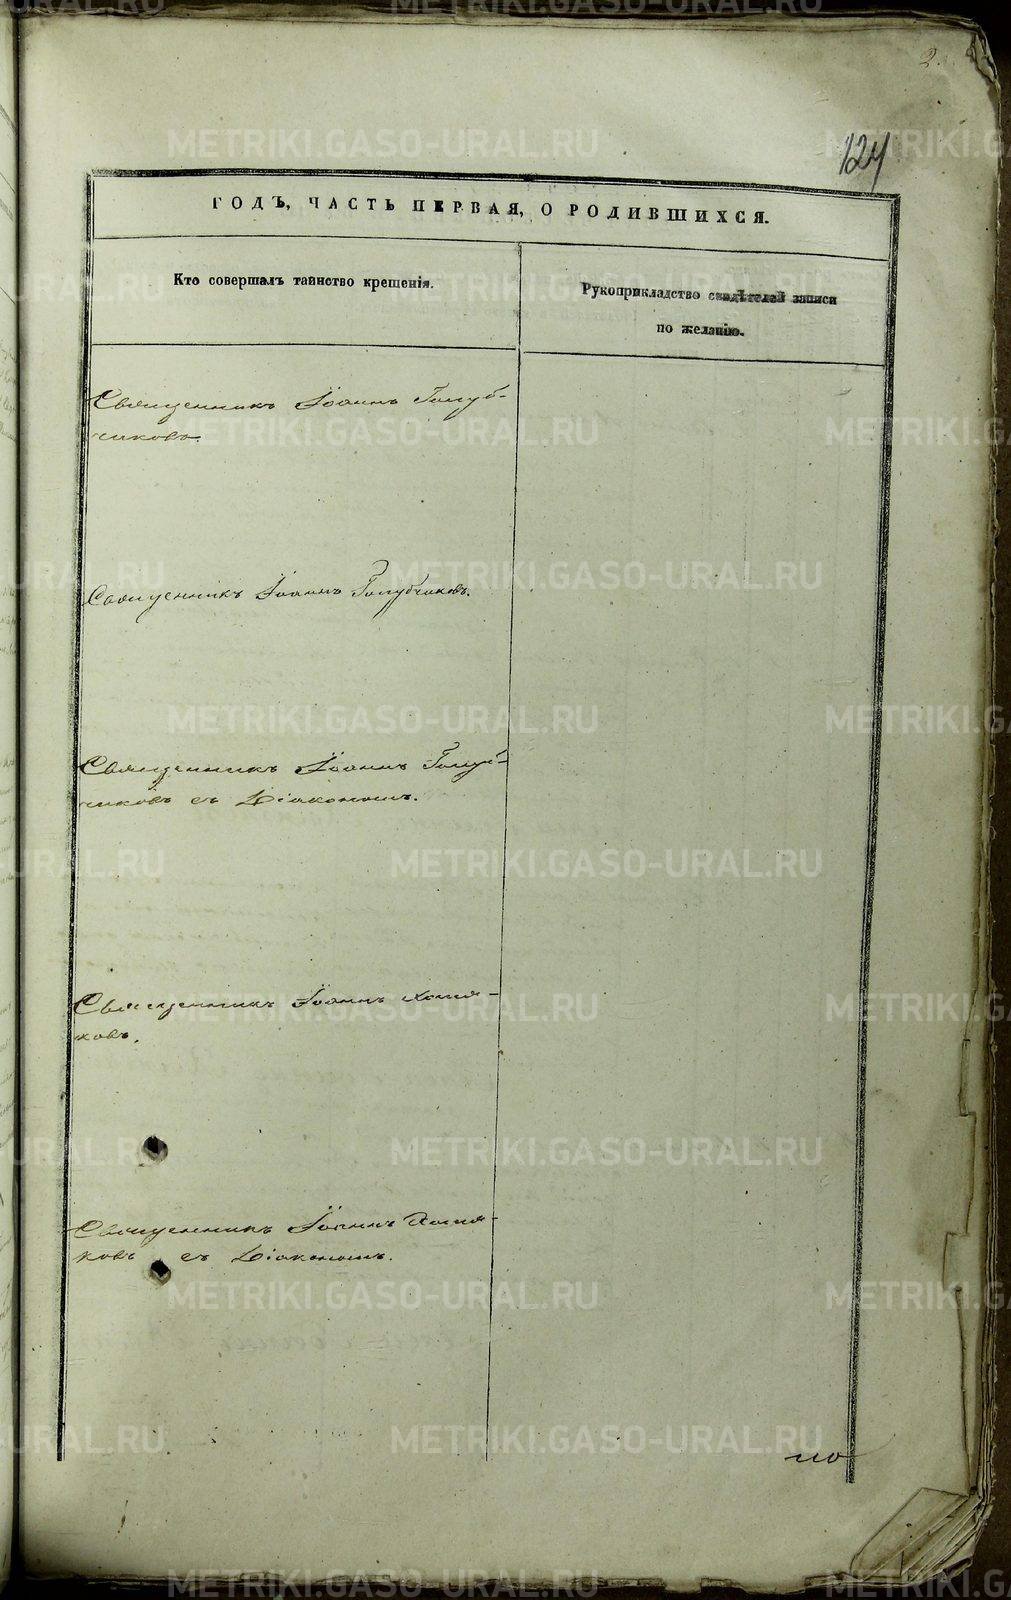 2.
124
ГОДЪ, ЧАСТЬ ПЕРВАЯ, О РОДИВШИХСЯ.
Кто совершалъ таинство крещенія.
Рукоприкладство свидѣтелей записи
по желанію.
Священникъ Іоаннъ Голуб-
чиковъ
Священникъ Іоаннъ Голубчиковъ.
Священникъ Іоаннъ Голуб-
чиковъ съ Діакономъ.
Священникъ Іоаннъ Хомя-
ковъ.
Священникъ Іоаннъ Хомя-
ковъ съ Діакономъ.
METRIKI.GASO-URAL.RU